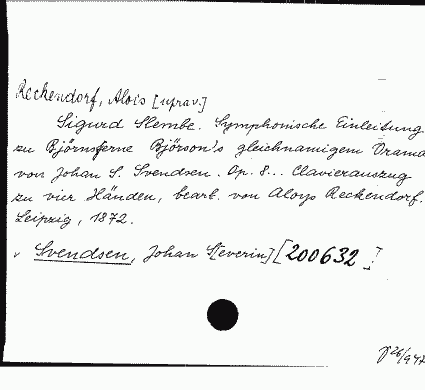 Reckendorf, Alois [uprav.]
Sigurd Slembe. Symphonische Einleitung
zu Björnsferne Björson's gleichnamigem Drama
von Johan S. Svendsen. Op. 8... Clavierauszug
zu vier Händen, bearb. von Aloys Reckendorf.
Leipzig, 1872.
v Svendsen, Johan S[everin] [200632]